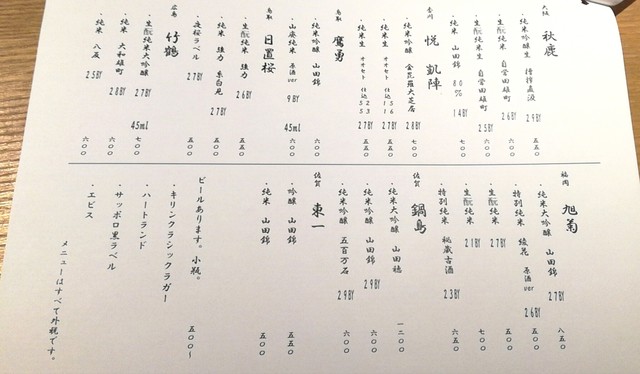 大阪 秋鹿
・純米吟醸生 槽搾直汲 29BY 五五〇
・生酛純米生 自営田雄町 26BY 六〇〇
・生酛純米 自営田雄町 25BY 六〇〇
・純米 山田錦 80% 14BY 七〇〇
香川 悦凱陣
・純米吟醸 金毘羅大芝居 28BY 五五〇
鳥取 鷹勇
・純米吟醸 山田錦 六〇〇
・山廃純米 原酒ver 9BY 45ml 六〇〇
鳥取 日置桜
・生酛純米 強力 26BY 五五〇
・純米 強力 27BY 五五〇
・夜桜ラベル 27BY 五〇〇
広島 竹鶴
・生酛純米大吟醸 27BY 45ml 七〇〇
・純米 大和雄町 28BY 六〇〇
・純米 八反 25BY 六〇〇
福岡 旭菊
・純米大吟醸 山田錦 27BY 八五〇
・特別純米 綾花 原酒ver 26BY 五五〇
・生酛純米 27BY 五〇〇
・生酛純米 21BY 七〇〇
・特別純米 秘蔵古酒 23BY 六五〇
佐賀 鍋島
・純米大吟醸 山田穂 一二〇〇
・純米吟醸 山田錦 29BY 六〇〇
・純米吟醸 五百万石 29BY 六〇〇
佐賀 東一
・吟醸 山田錦 五五〇
・純米 山田錦 五〇〇
ビールあります。小瓶。 五〇〇〜
・キリンクラシックラガー
・ハートランド
・サッポロ黒ラベル
・エビス
メニューはすべて外税です。